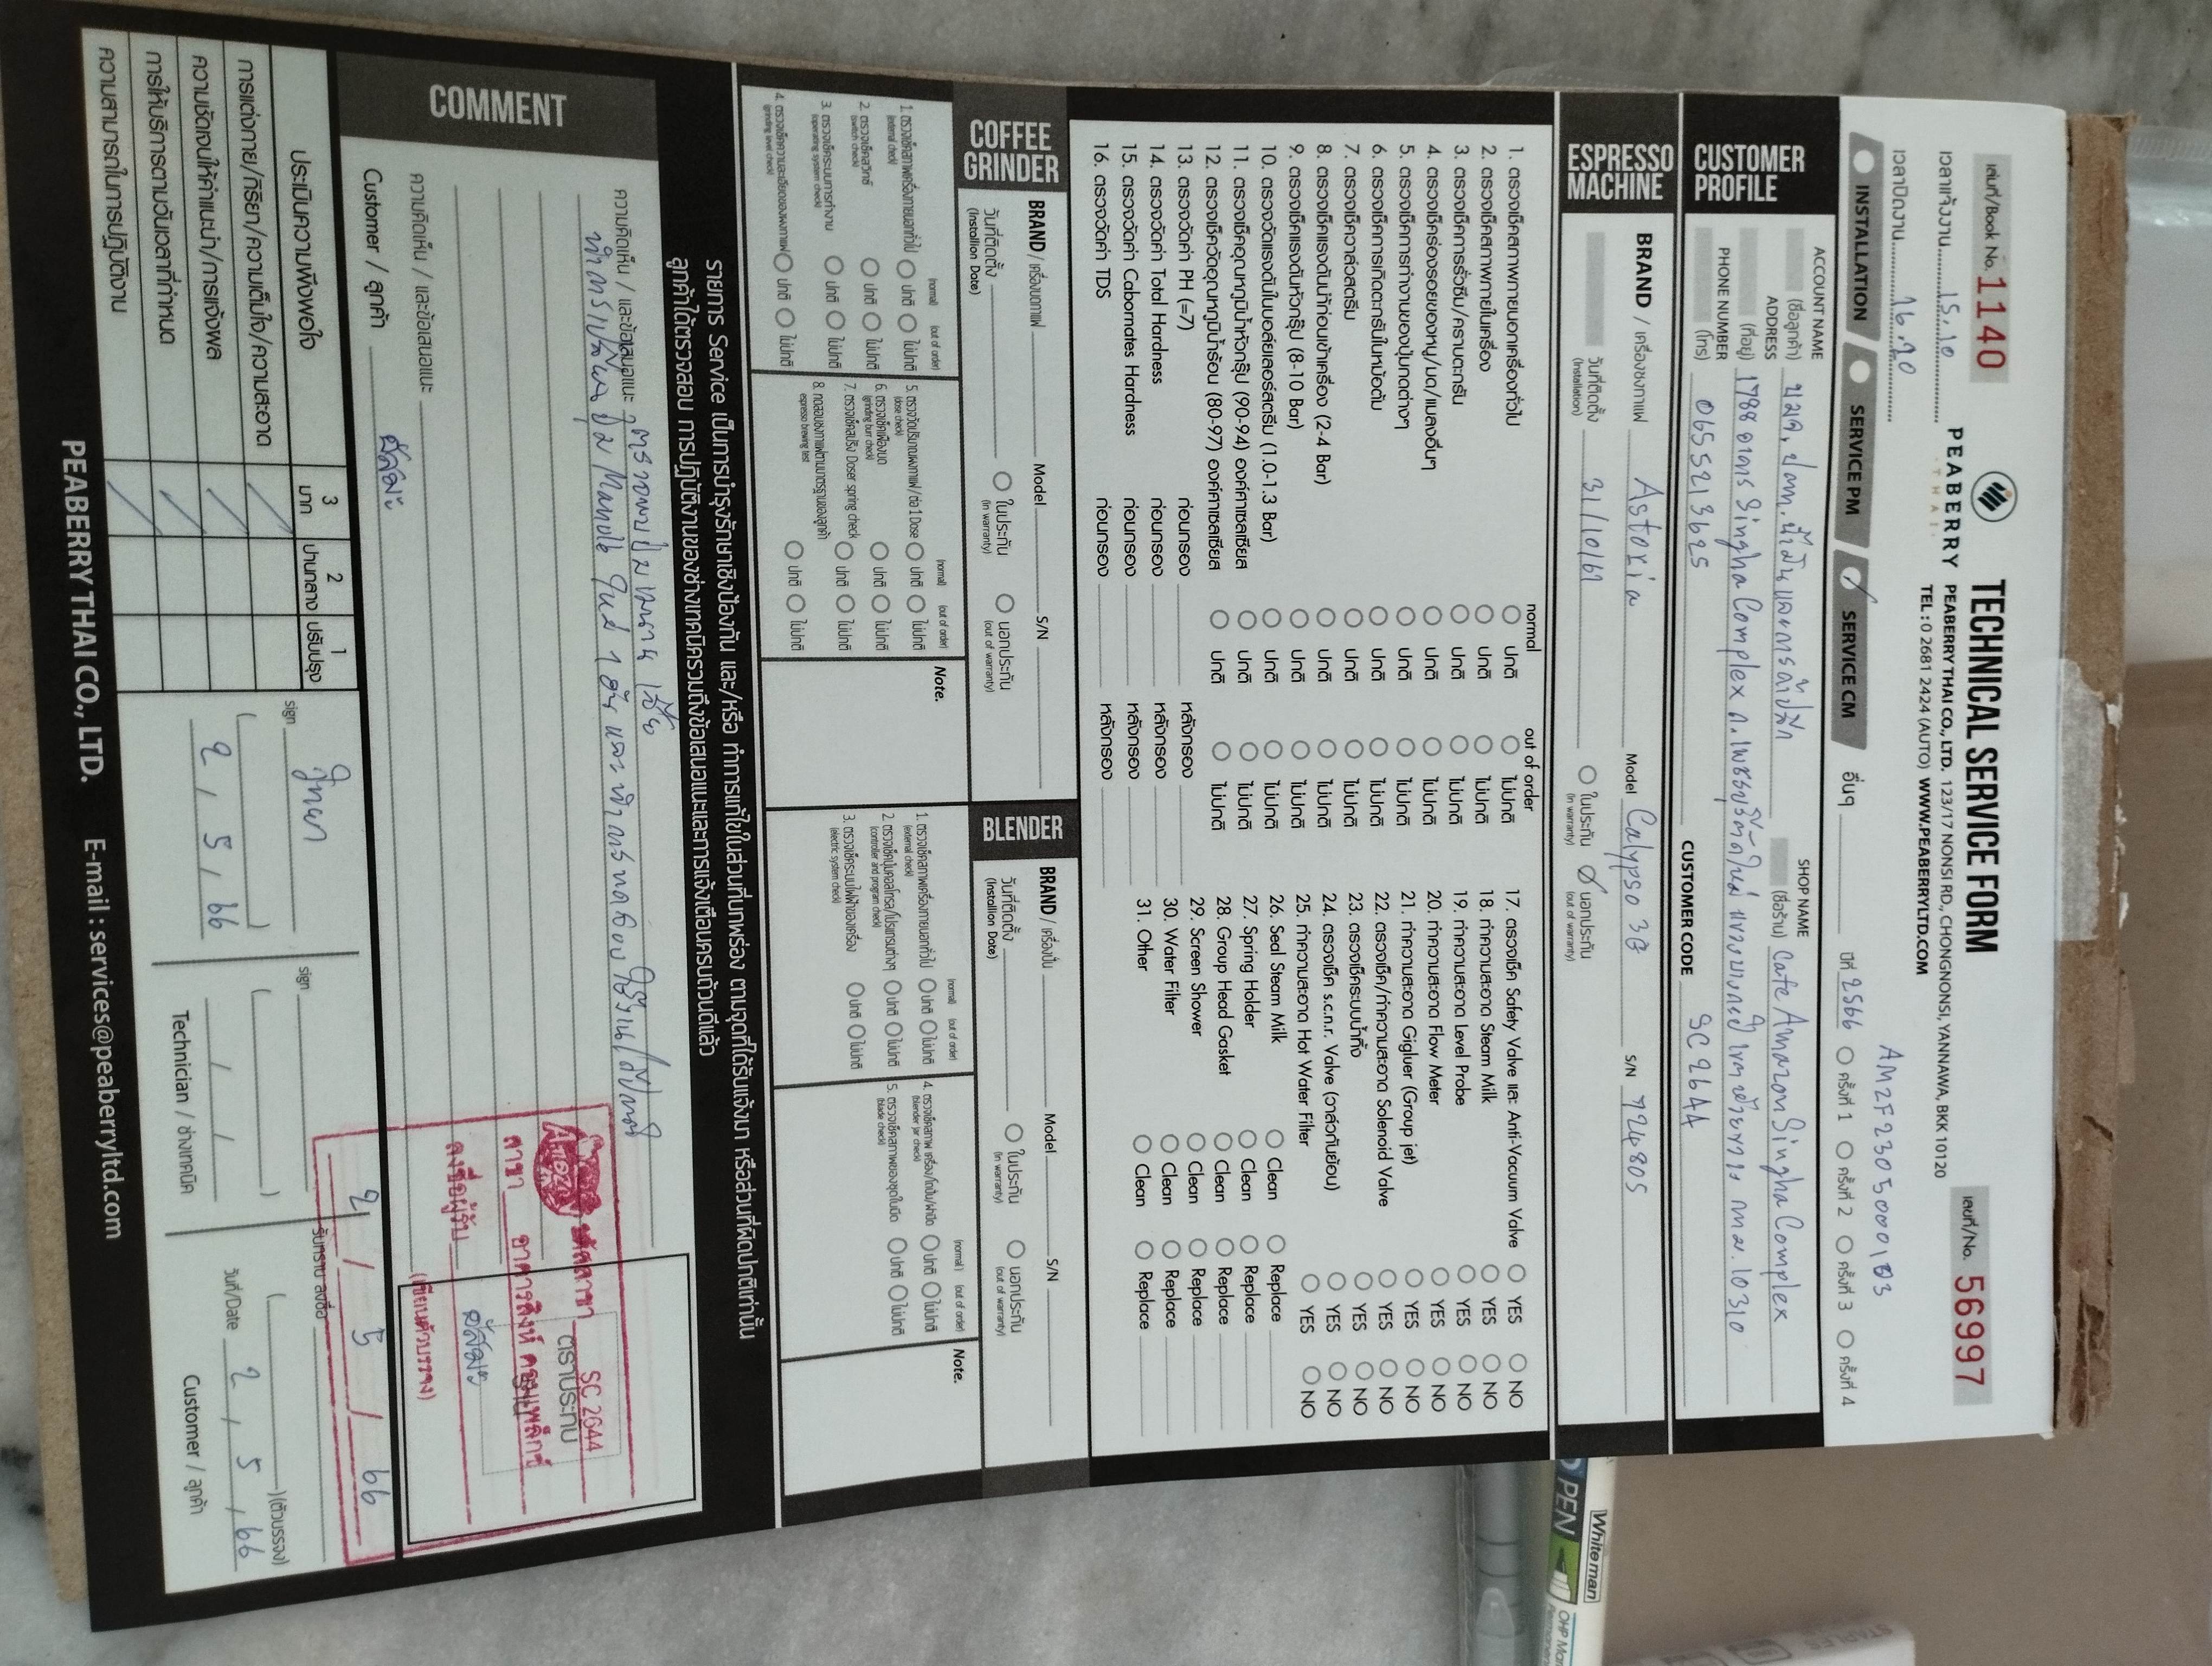 เล่มที่/Book No. 1140
TECHNICAL SERVICE FORM
เลขที่/No. 56997
เวลาแจ้งงาน 15.10
PEABERRY
THAI
PEABERRY THAI CO., LTD. 123/17 NONSI RD., CHONGNONSI, YANNAWA, BKK 10120
TEL : 0 2681 2424 (AUTO) WWW.PEABERRYLTD.COM
เวลาปิดงาน
AM2F2305000103
INSTALLATION
SERVICE PM
SERVICE CM
อื่นๆ
ปีที่ 2566 ครั้งที่ 1 ครั้งที่ 2 ครั้งที่ 3 ครั้งที่ 4
CUSTOMER PROFILE
ACCOUNT NAME (ชื่อลูกค้า) บมจ. ปตท. น้ำมันและการค้าปลีก
SHOP NAME (ชื่อร้าน) Cafe Amazon Singha Complex
ADDRESS (ที่อยู่) 1788 อาคาร Singha Complex ถ.เพชรบุรีตัดใหม่ แขวงบางกะปิ เขตห้วยขวาง กทม. 10310
PHONE NUMBER (โทร) 0655213625
CUSTOMER CODE SC 2644
ESPRESSO MACHINE
BRAND / เครื่องชงกาแฟ Astoria Model Calypso 3G S/N 724805
วันที่ติดตั้ง (Installation) 31/10/61 ในประกัน (In warranty) นอกประกัน (out of warranty)
normal out of order
1. ตรวจเช็คสภาพภายนอกเครื่องทั่วไป ปกติ ไม่ปกติ
2. ตรวจเช็คสภาพภายในเครื่อง ปกติ ไม่ปกติ
3. ตรวจเช็คการรั่วซึม/คราบตะกรัน ปกติ ไม่ปกติ
4. ตรวจเช็คร่องรอยของหนู/มด/แมลงอื่นๆ ปกติ ไม่ปกติ
5. ตรวจเช็คการทำงานของปุ่มกดต่างๆ ปกติ ไม่ปกติ
6. ตรวจเช็คการเกิดตะกรันในหม้อต้ม ปกติ ไม่ปกติ
7. ตรวจเช็ควาล์วสตรีม ปกติ ไม่ปกติ
8. ตรวจเช็คแรงดันน้ำก่อนเข้าเครื่อง (2-4 Bar) ปกติ ไม่ปกติ
9. ตรวจเช็คแรงดันหัวกรุ๊ป (8-10 Bar) ปกติ ไม่ปกติ
10. ตรวจวัดแรงดันในบอล์ยเลอร์สตรีม (1.0-1.3 Bar) ปกติ ไม่ปกติ
11. ตรวจเช็คอุณหภูมิน้ำหัวกรุ๊ป (90-94) องค์ศาเซลเซียส ปกติ ไม่ปกติ
12. ตรวจเช็ควัดอุณหภูมิน้ำร้อน (80-97) องค์ศาเซลเซียส ปกติ ไม่ปกติ
13. ตรวจวัดค่า PH (=7) ก่อนกรอง หลังกรอง
14. ตรวจวัดค่า Total Hardness ก่อนกรอง หลังกรอง
15. ตรวจวัดค่า Cabornates Hardness ก่อนกรอง หลังกรอง
16. ตรวจวัดค่า TDS ก่อนกรอง หลังกรอง
17. ตรวจเช็ค Safety Valve และ Anti-Vacuum Valve YES NO
18. ทำความสะอาด Steam Milk YES NO
19. ทำความสะอาด Level Probe YES NO
20. ทำความสะอาด Flow Meter YES NO
21. ทำความสะอาด Gigluer (Group jet) YES NO
22. ตรวจเช็ค/ทำความสะอาด Solenoid Valve YES NO
23. ตรวจเช็คระบบน้ำทิ้ง YES NO
24. ตรวจเช็ค s.c.n.r. Valve (วาล์วกันย้อน) YES NO
25. ทำความสะอาด Hot Water Filter YES NO
26. Seal Steam Milk Clean Replace
27. Spring Holder Clean Replace
28. Group Head Gasket Clean Replace
29. Screen Shower Clean Replace
30. Water Filter Clean Replace
31. Other Clean Replace
COFFEE GRINDER
BRAND / เครื่องบดกาแฟ Model S/N
วันที่ติดตั้ง (Installion Date) ในประกัน (in warranty) นอกประกัน (out of warranty)
(normal) (out of order)
1. ตรวจเช็คสภาพเครื่องภายนอกทั่วไป (external check) ปกติ ไม่ปกติ
2. ตรวจเช็คสวิทซ์ (switch check) ปกติ ไม่ปกติ
3. ตรวจเช็คระบบการทำงาน (operating system check) ปกติ ไม่ปกติ
4. ตรวจเช็คความละเอียดของผงกาแฟ (grinding level check) ปกติ ไม่ปกติ
5. ตรวจวัดปริมาณผงกาแฟ/ต่อ 1 Dose (dose check) ปกติ ไม่ปกติ
6. ตรวจเช็คเฟืองบด (grinding burr check) ปกติ ไม่ปกติ
7. ตรวจเช็คสปริง Doser spring check ปกติ ไม่ปกติ
8. ทดสอบชงกาแฟตามมาตรฐานของลูกค้า espresso brewing test ปกติ ไม่ปกติ
Note.
BLENDER
BRAND / เครื่องปั่น Model S/N
วันที่ติดตั้ง (Installion Date) ในประกัน (in warranty) นอกประกัน (out of warranty)
(normal) (out of order)
1. ตรวจเช็คสภาพเครื่องภายนอกทั่วไป (external check) ปกติ ไม่ปกติ
2. ตรวจเช็คปุ่มคอลโทรล/โปรแกรมต่างๆ (controller and program check) ปกติ ไม่ปกติ
3. ตรวจเช็คระบบไฟฟ้าของเครื่อง (electric system check) ปกติ ไม่ปกติ
4. ตรวจเช็คสภาพ เครื่อง/โถปั่น/ฝาปิด (blender jar check) ปกติ ไม่ปกติ
5. ตรวจเช็คสภาพของชุดใบมีด (blade check) ปกติ ไม่ปกติ
Note.
รายการ Service เป็นการบำรุงรักษาเชิงป้องกัน และ/หรือ ทำการแก้ไขในส่วนที่บกพร่อง ตามจุดที่ได้รับแจ้งมา หรือส่วนที่ผิดปกติเท่านั้น
ลูกค้าได้ตรวจสอบ การปฏิบัติงานของช่างเทคนิครวมถึงข้อเสนอแนะและการแจ้งเตือนครบถ้วนดีแล้ว
COMMENT
ความคิดเห็น / และข้อเสนอแนะ ตรวจพบปุ่มเมนวล เสีย
ทำการเปลี่ยน ปุ่ม Manole ใหม่ 1 อัน และทำการทดสอบ ใช้งานได้ปกติ
ความคิดเห็น / และข้อเสนอแนะ
Customer / ลูกค้า
รหัสสาขา SC 2644
Amazon
สาขา อาคารสิงห์ คอมเพล็กซ์
ลงชื่อผู้รับ
(เขียนตัวบรรจง)
2 / 5 / 66
ตราประทับ
ประเมินความพึงพอใจ 3 มาก 2 ปานกลาง 1 ปรับปรุง
การแต่งกาย/กิริยา/ความเต็มใจ/ความสะอาด
ความชัดเจนให้คำแนะนำ/การแจ้งผล
การให้บริการตามวันเวลาที่กำหนด
ความสามารถในการปฏิบัติงาน
sign
2 / 5 / 66
sign
Technician / ช่างเทคนิค
รับทราบ ลงชื่อ
(ตัวบรรจง)
วันที่/Date 2 / 5 / 66
Customer / ลูกค้า
PEABERRY THAI CO., LTD. E-mail : services@peaberryltd.com
PEN
Whiteman
STAPLES